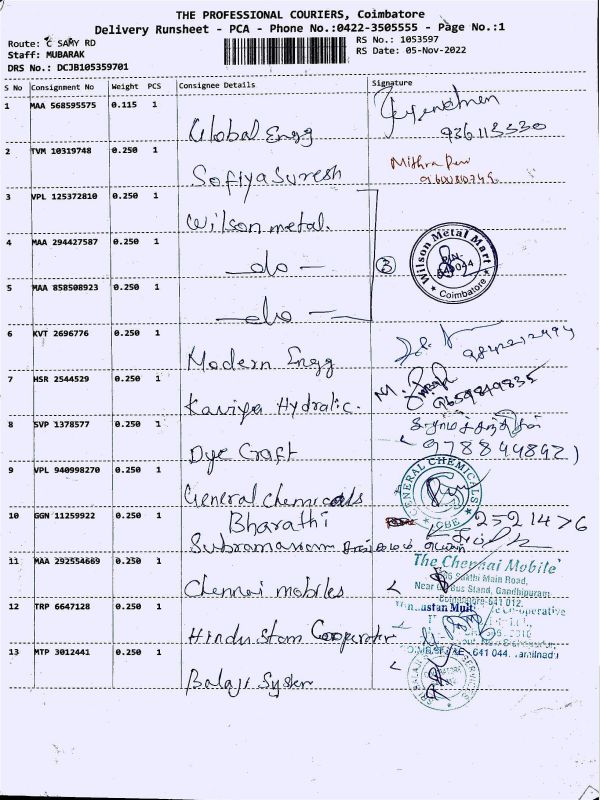 THE PROFESSIONAL COURIERS, Coimbatore
Delivery Runsheet - PCA - Phone No.:0422-3505555 - Page No.:1
Route: C SARY RD
Staff: MUBARAK
DRS No.: DCJB105359701
RS No.: 1053597
RS Date: 05-Nov-2022
S No Consignment No Weight PCS Consignee Details Signature
1 MAA 568595575 0.115 1
Global Engg
936113330
2 TVM 10319748 0.250 1
Sofiya Suresh
Mithra
3 VPL 125372810 0.250 1
Wilson metal.
4 MAA 294427587 0.250 1
— do —
3
Wilson Metal Mart
Coimbatore
5 MAA 858508923 0.250 1
— do —
6 KVT 2696776 0.250 1
Modern Engg
7 HSR 2544529 0.250 1
Kaviya Hydralic.
9659849835
8 SVP 1378577 0.250 1
Dye Craft
9 VPL 940998270 0.250 1
General Chemicals
GENERAL CHEMICALS
CBE
10 GGN 11259922 0.250 1
Bharathi
Subramaniam
11 MAA 292554669 0.250 1
Chennai mobiles
The Chennai Mobile
Main Road,
Near Bus Stand, Gandhipuram
Coimbatore-641 012.
12 TRP 6647128 0.250 1
Hindustan Cooperativ
13 MTP 3012441 0.250 1
641 044.
Balaji System